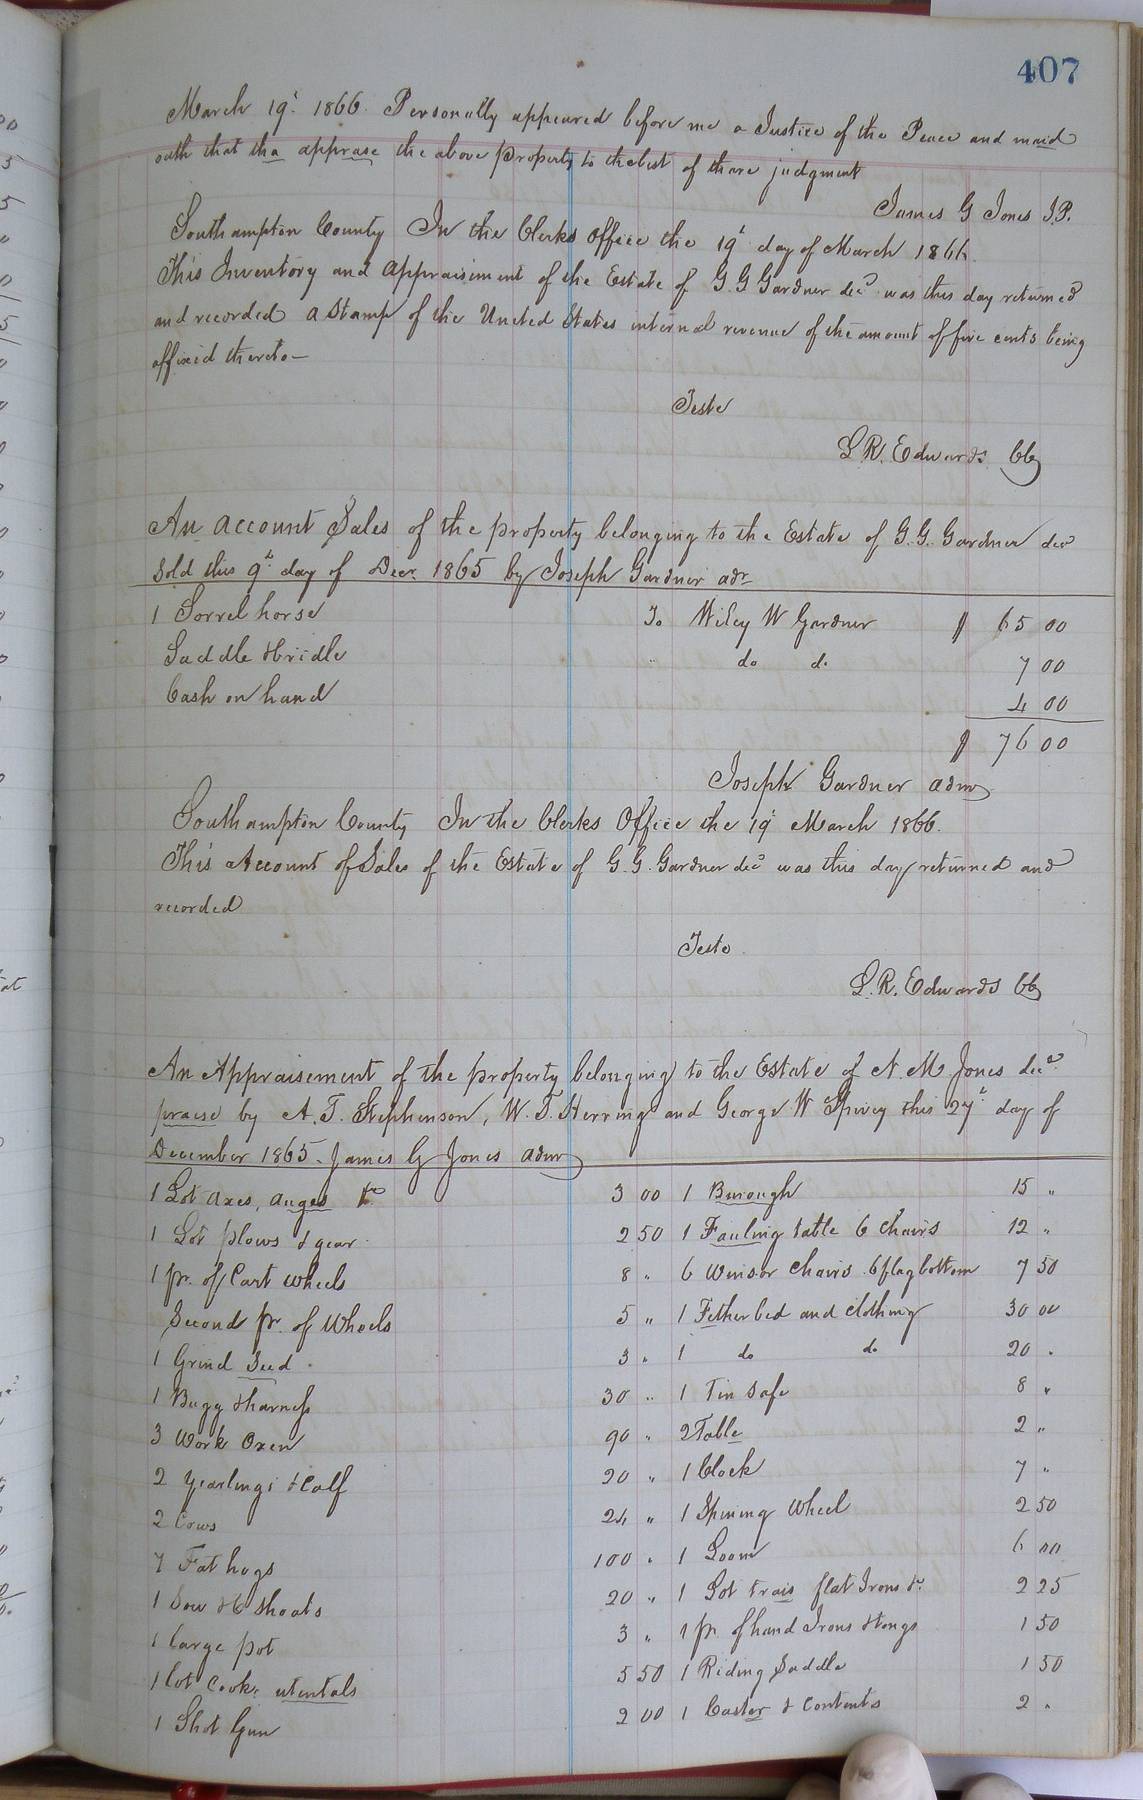 407
March 19th 1866. Personally appeared before me a Justice of the Peace and maid
oath that tha apprase the above property to the best of thare judgment
James G Jones J.P.
Southampton County In the Clerks Office the 19th day of March 1866.
This Inventory and Appraisment of the Estate of G G Gardner decd was this day returned
and recorded a Stamp of the United States internal revenue of the amount of five cents being
affixed thereto—
Teste
L R. Edwards CC
An account Sales of the property belonging to the Estate of G. G. Gardner decd
Sold this 9th day of Decr. 1865 by Joseph Gardner adr
1 Sorrel horse To Wiley W Gardner $ 65 00
Saddle & Bridle " do do 7 00
Cash on hand 4 00
$ 76 00
Joseph Gardner admr
Southampton County In the Clerks Office the 19th March 1866.
This Account of Sales of the Estate of G. G. Gardner decd was this day returned and
recorded
Teste.
L. R. Edwards CC
An Appraisement of the property belonging to the Estate of N. M Jones decd.
praise by A. T. Stephenson, W. T. Herring and George W Spivey this 27th day of
December 1865. James G Jones admr
1 Lot axes, auges &c 3 00 1 Burough 15 "
1 Lot plows & gear 2 50 1 Fauling table 6 chairs 12 "
1 pr. of Cart wheels 8 " 6 Winsor chairs 6 flag bottom 7 50
Second pr. of Wheels 5 " 1 Fether bed and clothing 30 00
1 Grind 3 " 1 do do 20 "
1 Bugg & harness 30 " 1 Tin Safe 8 "
3 Work Oxen 90 " 2 Table 2 "
2 Yearlings & Calf 20 " 1 Clock 7 "
2 Cows 24 " 1 Spining Wheel 2 50
7 Fat hogs 100 " 1 Loom 6 00
1 Sow & 6 Shoats 20 " 1 Lot trais flat Irons &c 2 25
1 large pot 3 " 1 pr. of hand Irons & tongs 1 50
1 lot Cook. utentals 5 50 1 Riding Saddle 1 50
1 Shot Gun 2 00 1 Caster & Contents 2 "